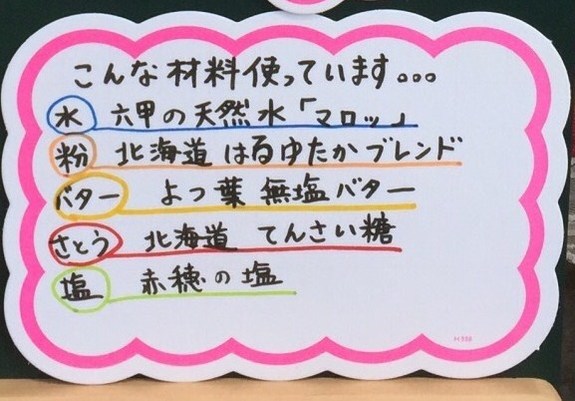 こんな材料使っています。。。
水 六甲の天然水「マロッ」
粉 北海道 はるゆたかブレンド
バター よつ葉 無塩バター
さとう 北海道 てんさい糖
塩 赤穂の塩
H358